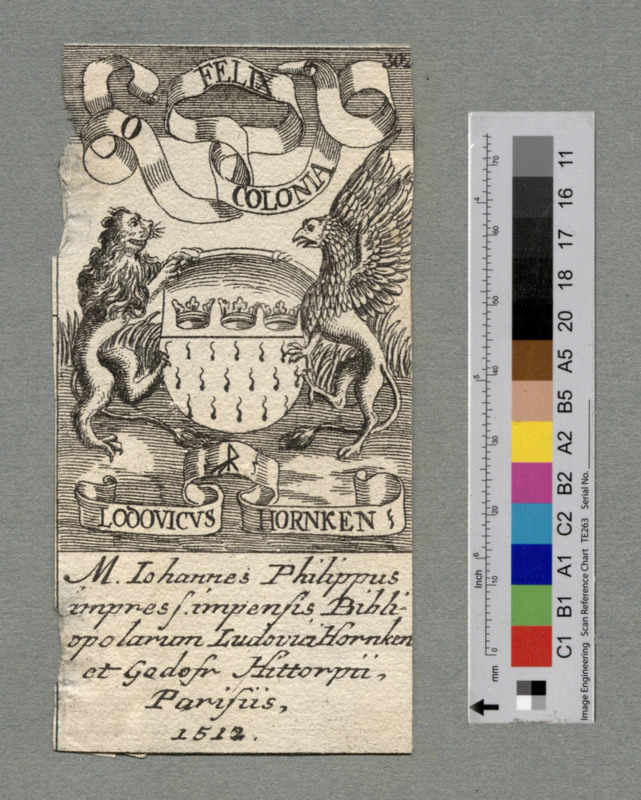 302
FELIX
O
COLONIA
LODOVICVS HORNKEN
M. Iohannes Philippus
impresſ. impenſis Bibli-
opolarum Ludovici Hornken
et Godefr Hittorpii,
Pariſiis,
1512.
11
16
17
18
20
A5
B5
A2
B2
C2
A1
B1
C1
70
60
50
40
30
20
10
0
mm
Inch
4
5
6
Image Engineering Scan Reference Chart TE263 Serial No.